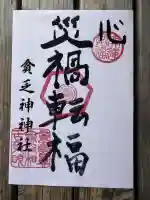 心
災禍転福
貧乏神神社